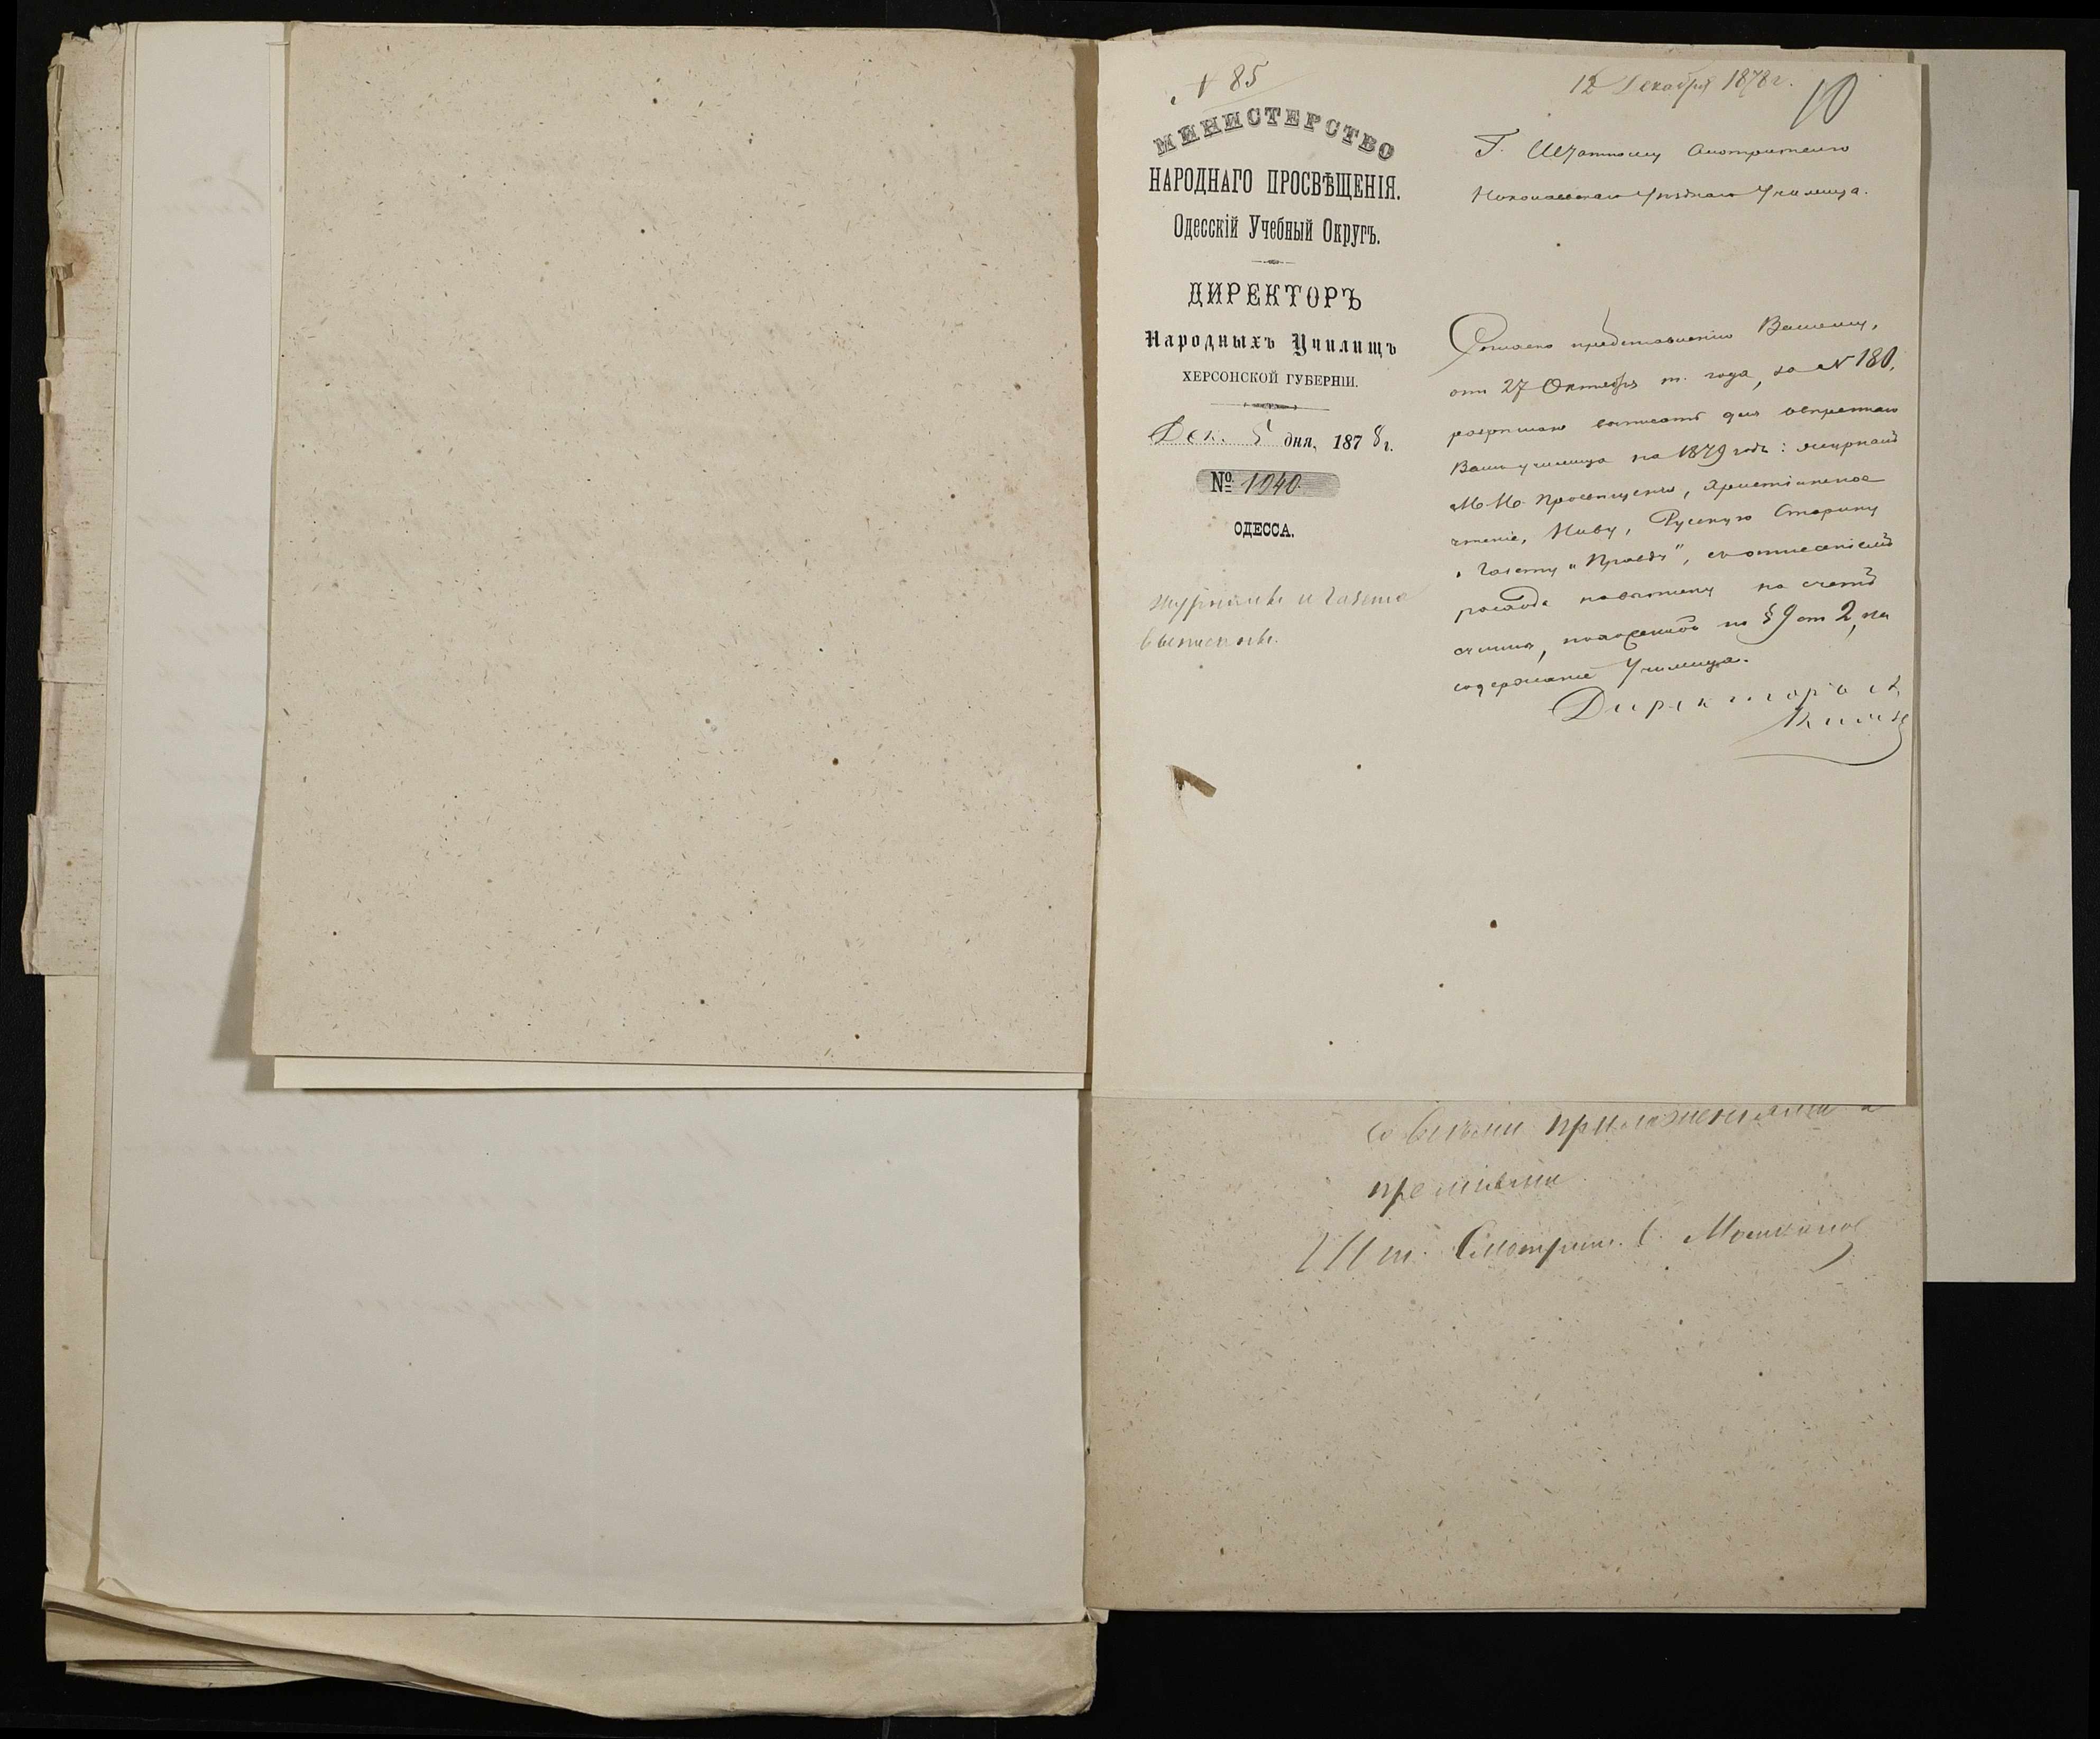 № 85
12 Декабря 1878 г.
10
МИНИСТЕРСТВО
НАРОДНАГО ПРОСВѢЩЕНІЯ.
Одесскій Учебный Округъ.
ДИРЕКТОРЪ
Народныхъ Училищъ
ХЕРСОНСКОЙ ГУБЕРНІИ.
Дек. 5 дня, 1878 г.
№ 1940.
ОДЕССА.
журналы и газета
выписаны.
Г. Штатному Смотрителю
Николаевскаго Уѣзднаго Училища.
Согласно представленію Вашему,
от 27 Октября т. года, за № 180,
разрѣшаю выписать для ввѣреннаго
Вамъ училища на 1879 годъ: журналъ
М. Н. Просвѣщенія, Христіанское
чтеніе, Ниву, Русскую Старину
и газету "Правда", съ отнесеніемъ
расхода на счетъ
суммы, по § 9 ст 2, на
содержаніе Училища.
Директоръ
со всѣми приложеніями и
преміями
Шт. Смотрит.